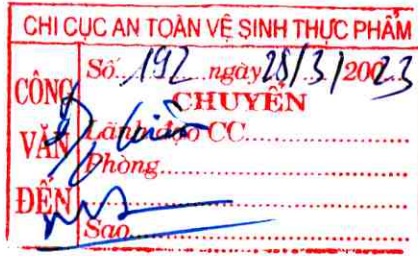 CHI CỤC AN TOÀN VỆ SINH THỰC PHẨM
CÔNG VĂN ĐẾN
Số 192 ngày 28/3/2023
CHUYỂN
Lãnh đạo CC
Phòng
Sao